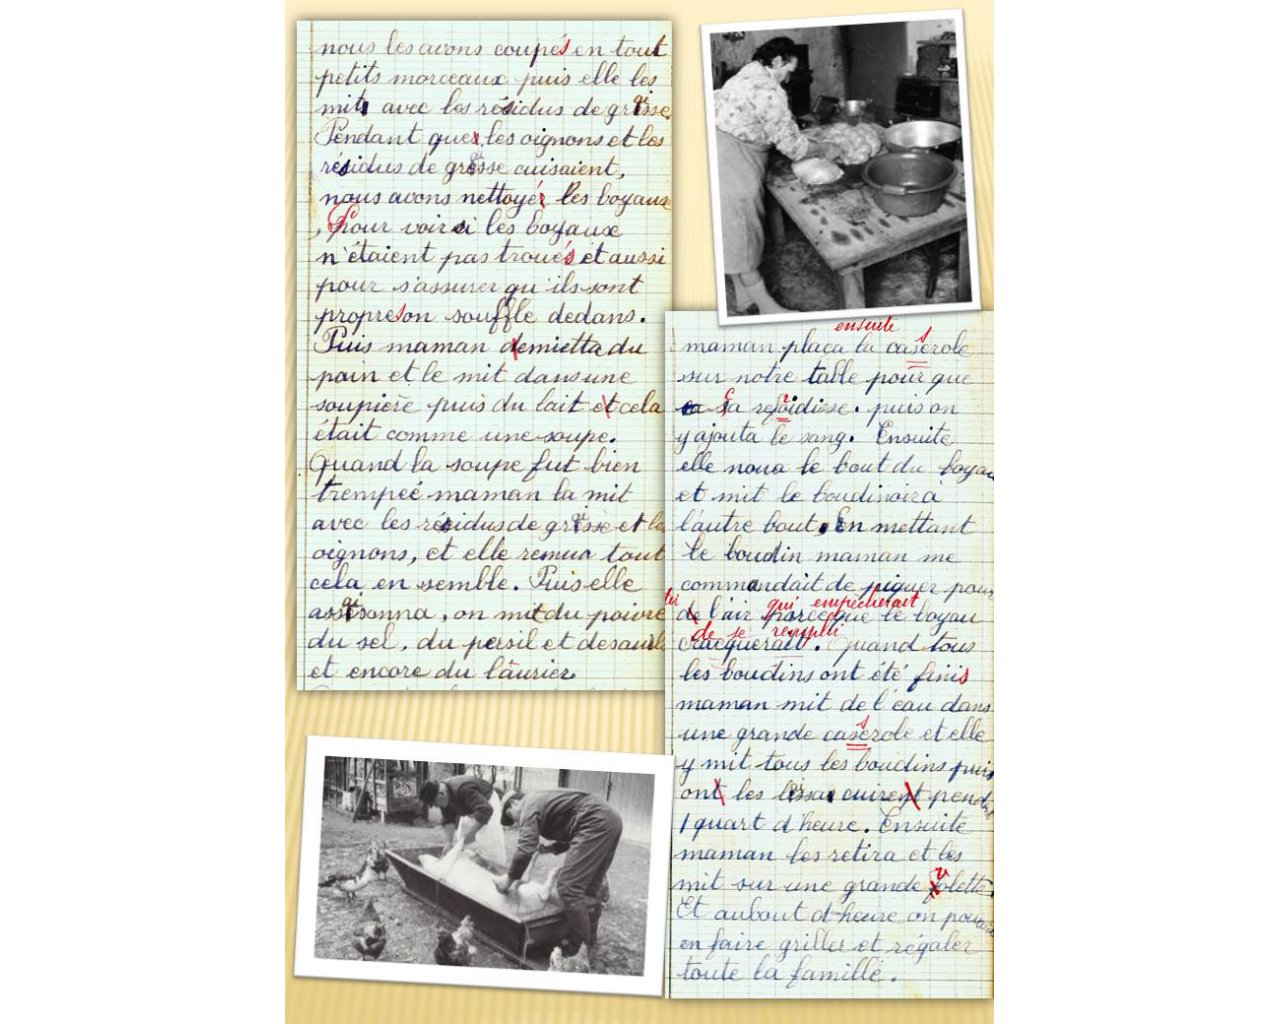 nous les avons coupés en tout
petits morceaux puis elle les
mit avec les résidus de graisse.
Pendant que les oignons et les
résidus de graisse cuisaient,
nous avons nettoyé les boyaux
, Pour voir si les boyaux
n'étaient pas troués et aussi
pour s'assurer qu'ils sont
propres on souffle dedans.
Puis maman émietta du
pain et le mit dans une
soupière puis du lait et cela
était comme une soupe.
Quand la soupe fut bien
trempeé maman la mit
avec les résidus de graisse et les
oignons, et elle remua tout
cela en semble. Puis elle
assaisonna, on mit du poivre
du sel, du persil et des aulx
et encore du laurier.
ensuite
maman plaça la casserole
sur notre table pour que
ça refroidisse. puis on
y ajouta le sang. Ensuite
elle noua le bout du boyau
et mit le boudinoir à
l'autre bout, En mettant
le boudin maman me
commandait de piquer pour
qui empêcherait
l'air parceque le boyau
de se remplir
craquerait. Quand tous
les boudins ont été finis
maman mit de l'eau dans
une grande casserole et elle
y mit tous les boudins puis
on les laissa cuire pendant
1 quart d'heure. Ensuite
maman les retira et les
mit sur une grande
Et au bout d'heure on pouvait
en faire griller et régaler
toute la famille.